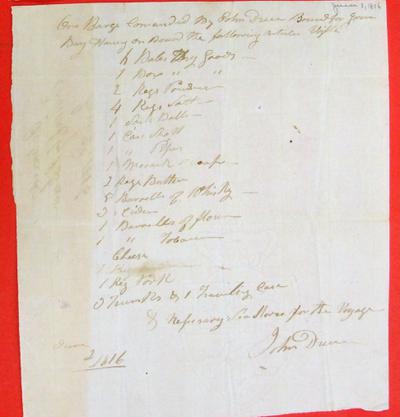 June 2, 1816
One Barge Comanded By John Drew Bound for Green
Bay Having on Board the following articles Viz
6 Bales Dry Goods
1 Box " "
2 Kegs Powder
4 Kegs Salt
1 Balls
1 Case Shott
1 " Pipes
1
2 Kegs Butter
8 Barrells of Whisky
2 " Cider
1 Barrells of flour
1 " Tobacco
Cheese
1
1 Keg Pork
3 Trunks & 1 Traveling Case
& Nessesary Sea Stores for the Voyage
John Drew
June
2 1816